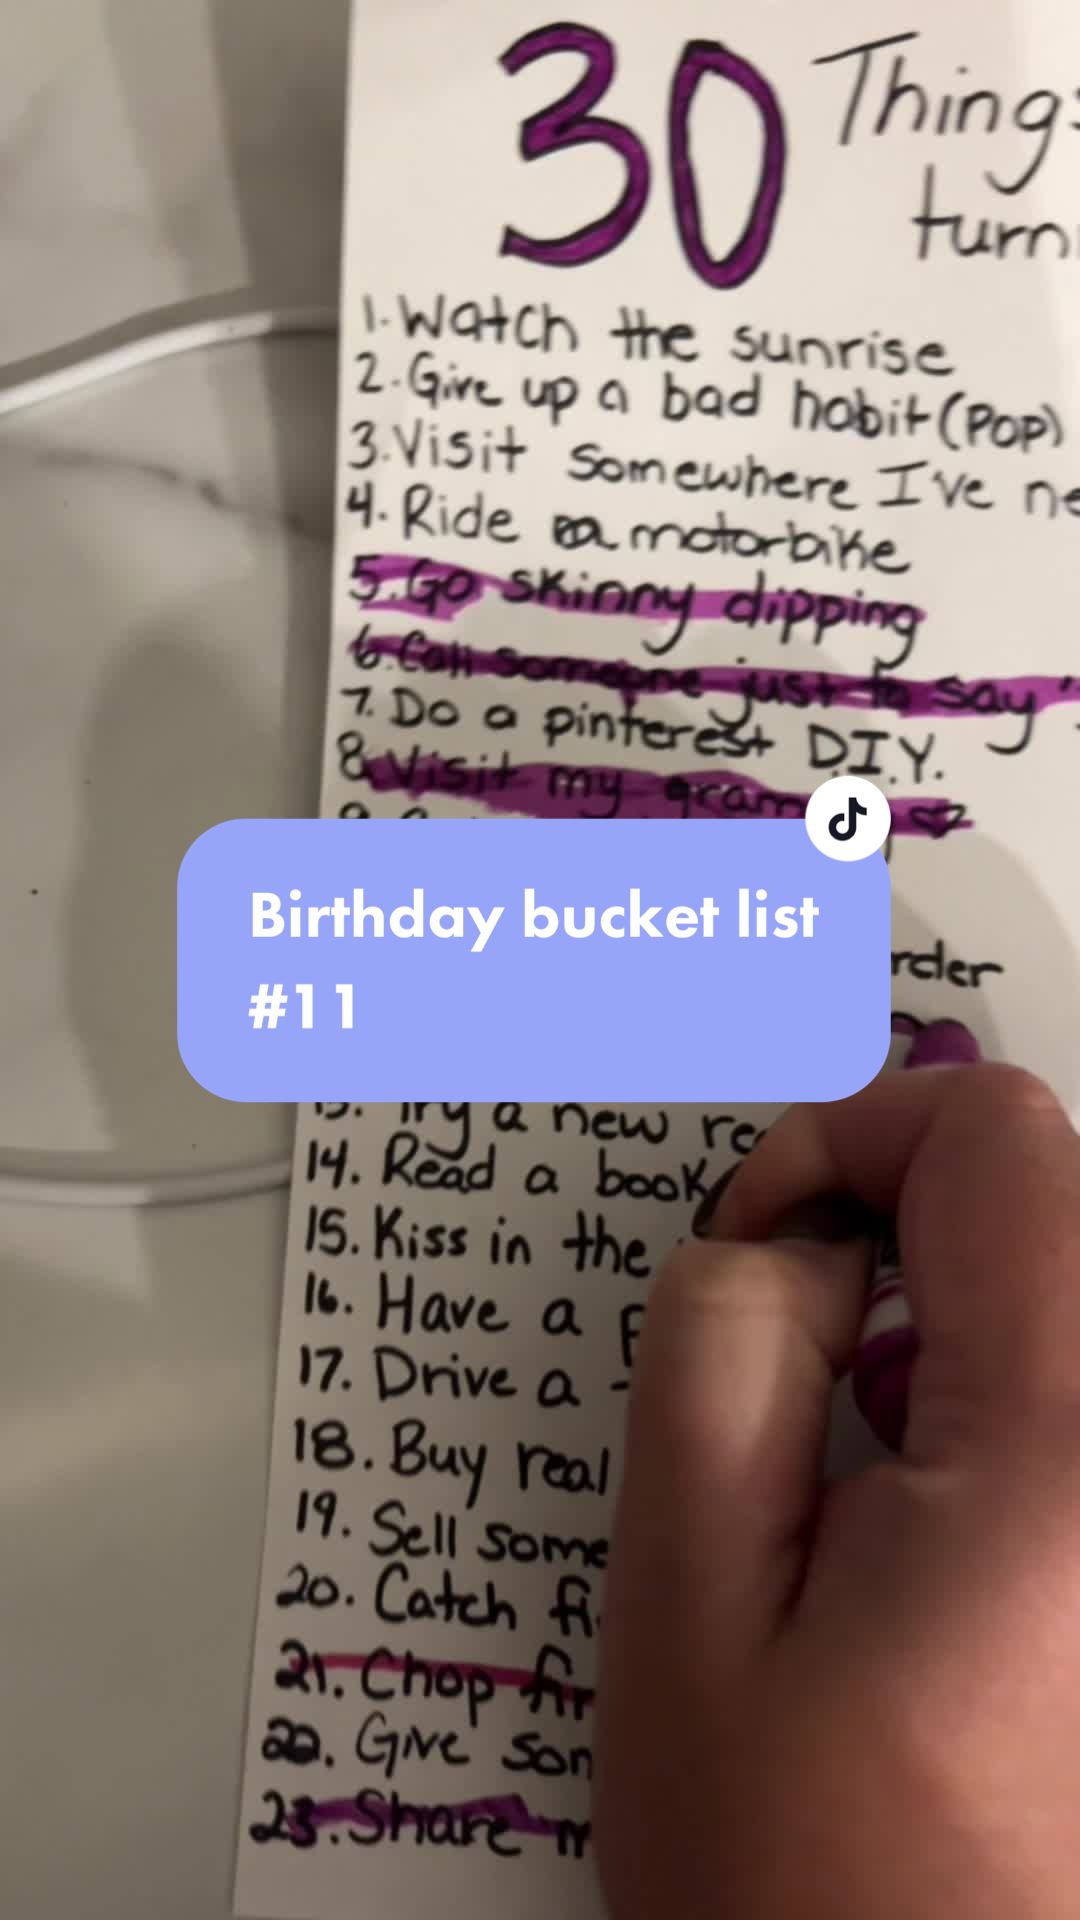 30 Things
turn
1. Watch the sunrise
2. Give up a bad habit (POP)
3. Visit somewhere I've ne
4. Ride a motorbike
5. Go skinny dipping
6. Call someone just to say "
7. Do a pinterest D.I.Y.
8. Visit my gram
Birthday bucket list
#11
rder
13. Try a new re
14. Read a book
15. Kiss in the
16. Have a
17. Drive a
18. Buy real
19. Sell some
20. Catch fi
21. Chop fir
22. Give som
23. Share m